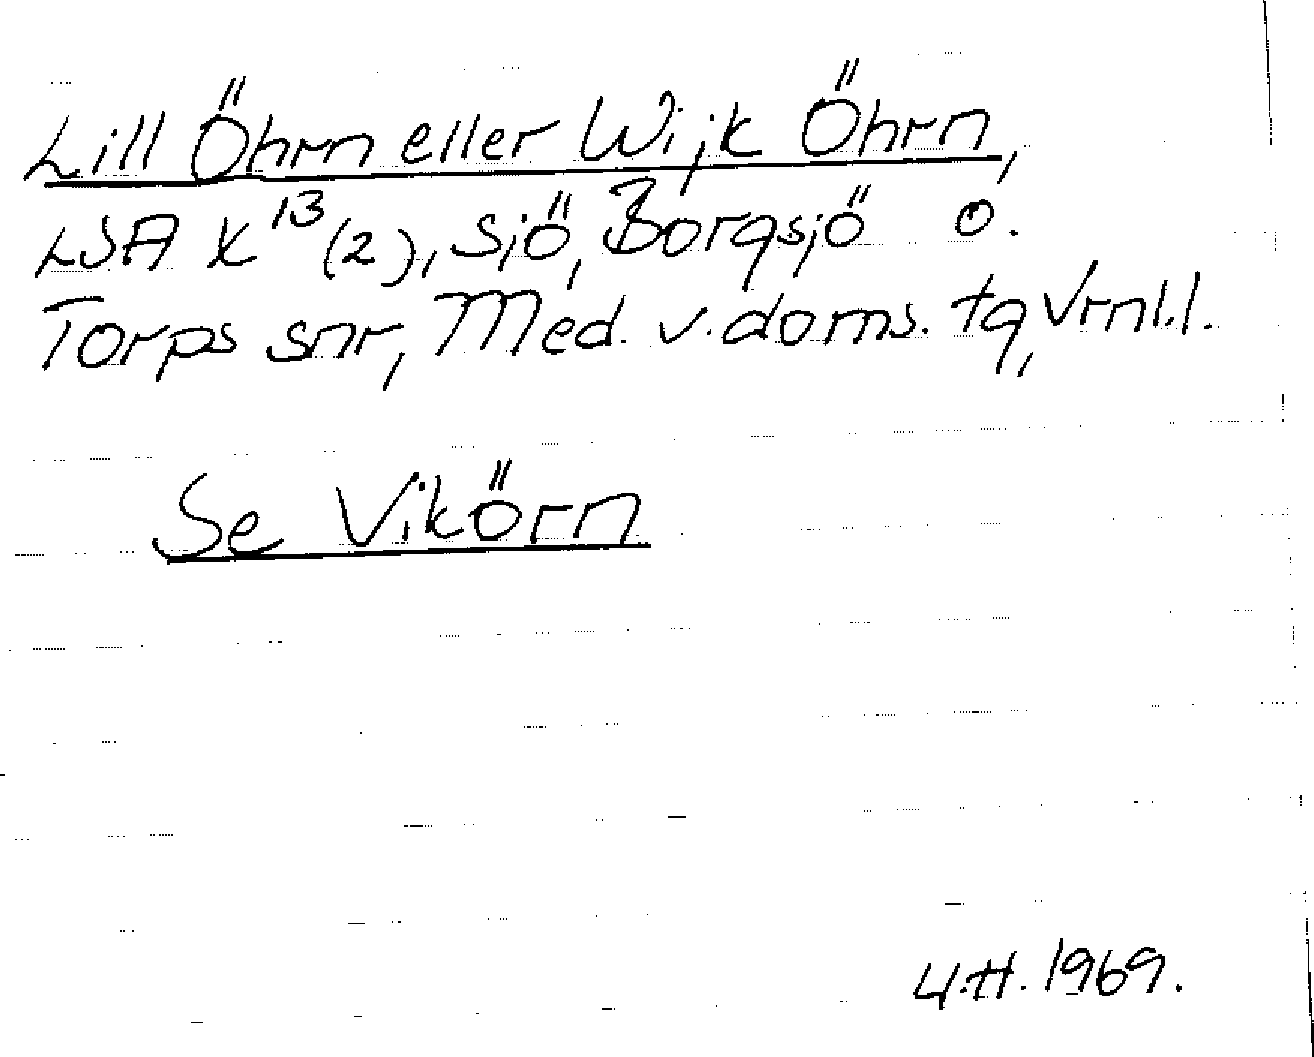 Lill Öhrn eller Wijk Öhrn,
LSA K13 (2), sjö, Borgsjö o.
Torps snr, Med. v. doms. tg, Vrnl. l.
Se Vikörn
U.H. 1969.